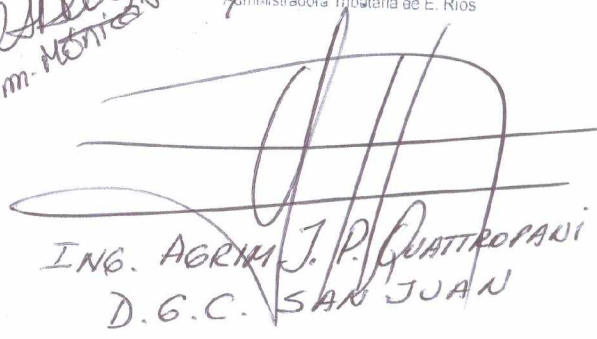 Administradora Tributaria de E. Ríos
m. Mónica
ING. AGRIM J. P. QUATTROPANI
D.G.C. SAN JUAN